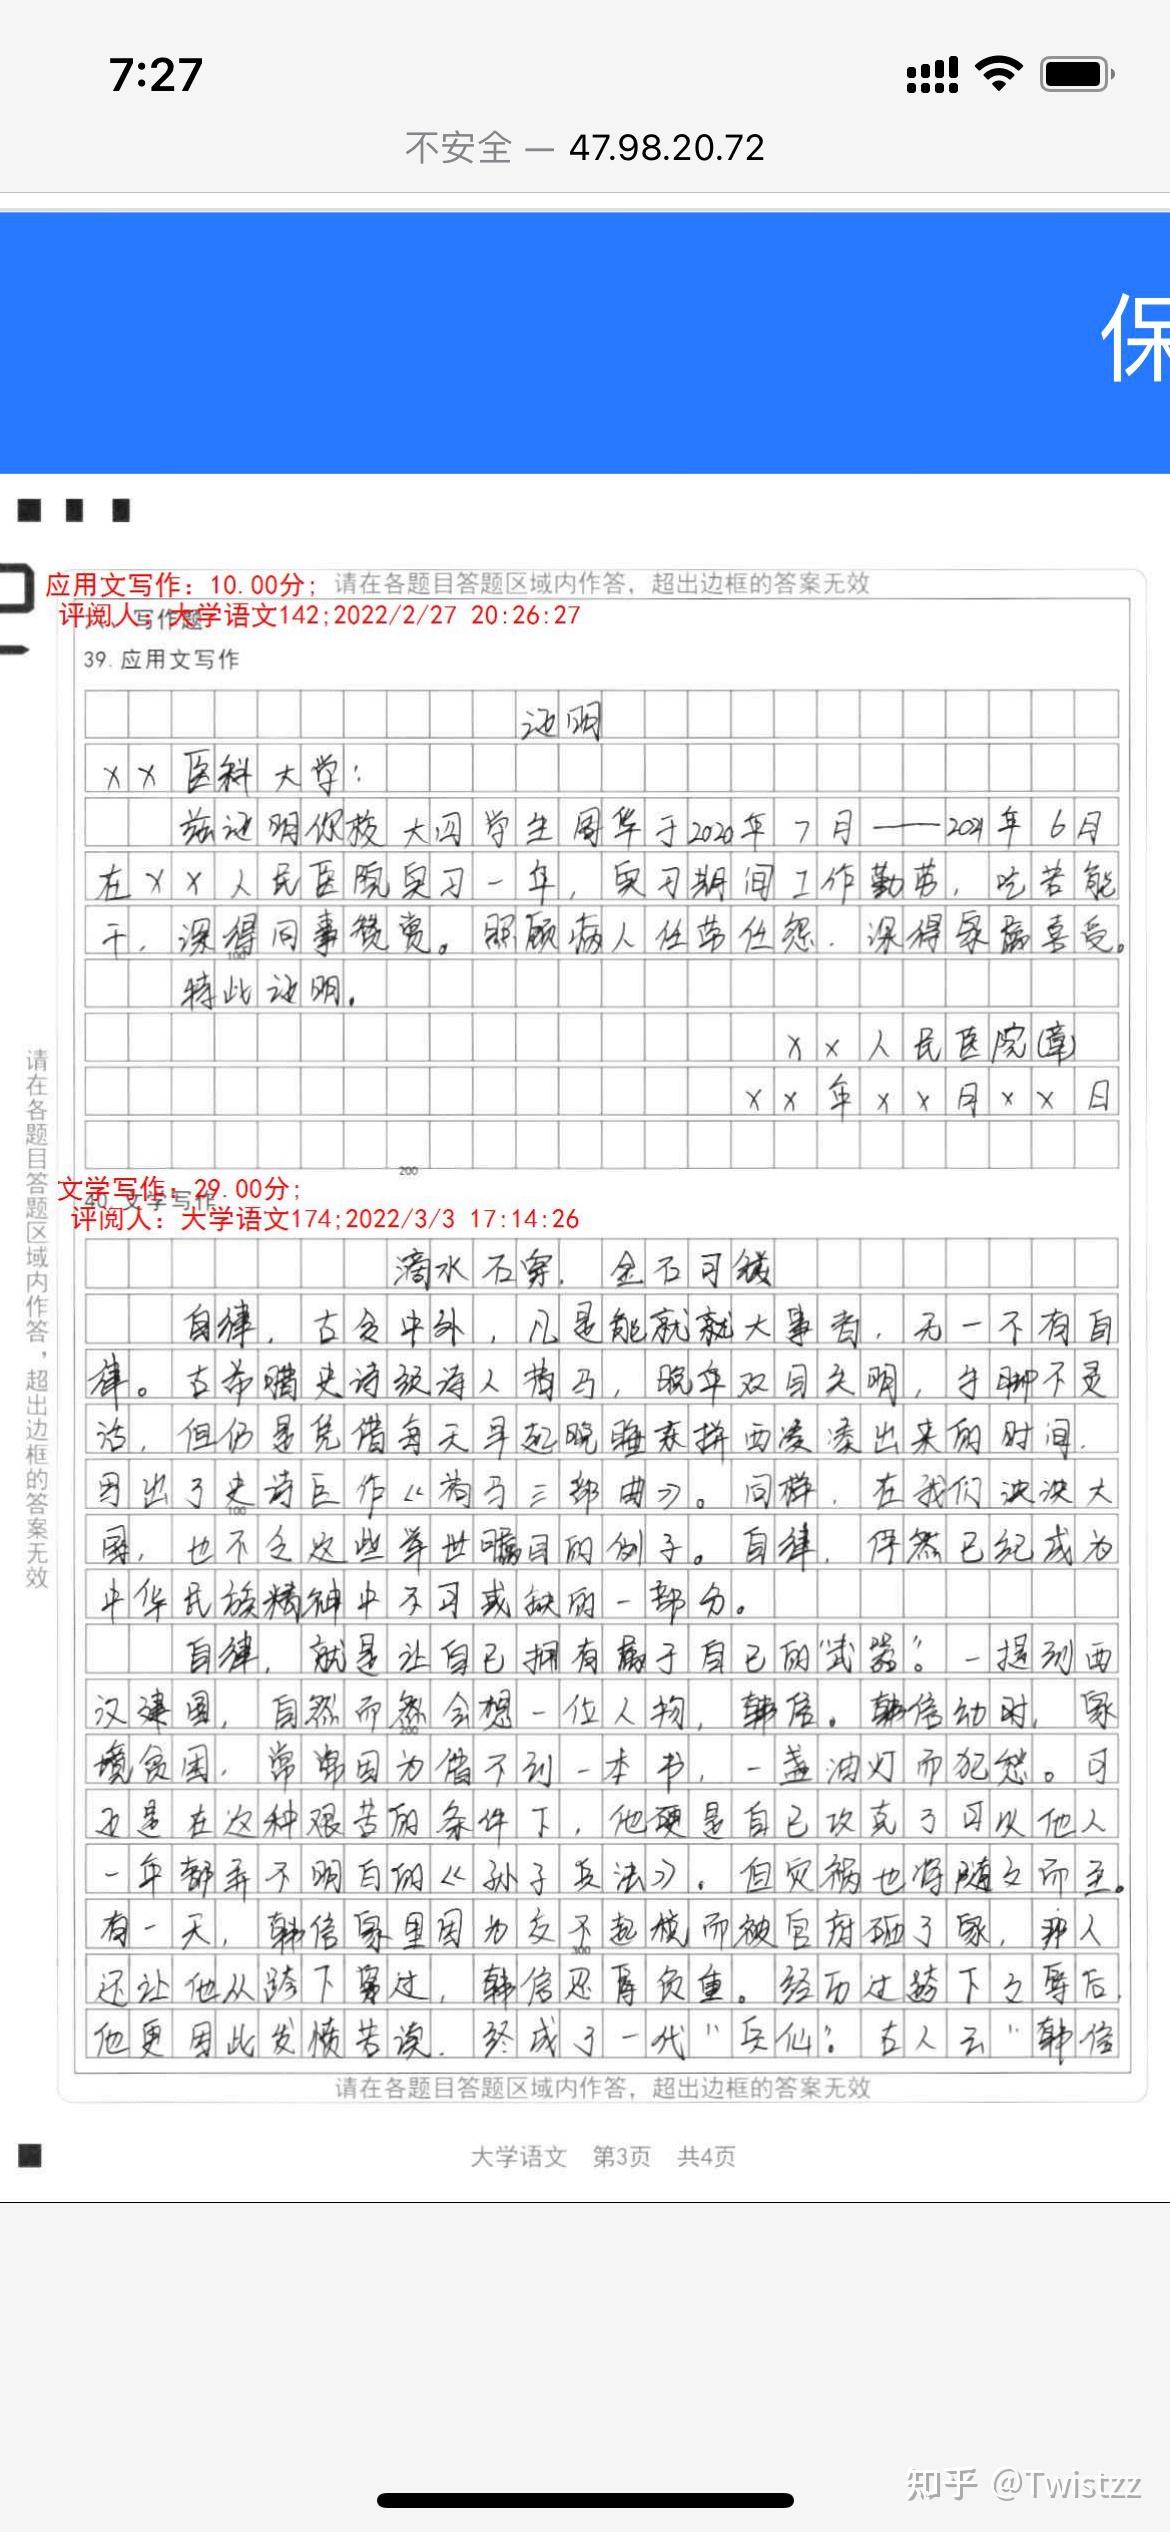 7:27
不安全 — 47.98.20.72
保
应用文写作：10.00分；
请在各题目答题区域内作答，超出边框的答案无效
评阅人：大学语文142;2022/2/27 20:26:27
写作题
39.应用文写作
证明
××医科大学：
兹证明你校大四学生周华于2020年7月——2021年6月
在××人民医院实习一年，实习期间工作勤劳，吃苦能
干，深得同事赞赏。照顾病人任劳任怨．深得家属喜爱。
100
特此证明．
××人民医院（章）
××年××月××日
200
文学写作：29.00分；
40.文学写作
评阅人：大学语文174;2022/3/3 17:14:26
滴水石穿．金石可镂
自律，古今中外，凡是能就就大事者．无一不有自
律。古希腊史诗级诗人荷马，晚年双目失明，手脚不灵
活，但仍是凭借每天早起晚睡来拼西凑凑出来的时间．
因出了史诗巨作《荷马三部曲》。同样．在我们泱泱大
100
国，也不乏这些举世瞩目的例子。自律，俨然已经成为
中华民族精神中不可或缺的一部分。
自律，就是让自己拥有属于自己的“武器”。一提到西
汉建国，自然而然会想一位人物，韩信。韩信幼时，家
200
境贫困．常常因为借不到一本书，一盏油灯而犯愁。可
正是在这种艰苦的条件下，他硬是自己攻克了可以他人
一年都弄不明白的《孙子兵法》．但灾祸也将随之而至。
有一天，韩信家里因为交不起税而被官府砸了家，那人
300
还让他从跨下穿过，韩信忍辱负重。经历过跨下之辱后，
他更因此发愤苦读．终成了一代“兵仙”．古人云“韩信
请在各题目答题区域内作答，超出边框的答案无效
请在各题目答题区域内作答，超出边框的答案无效
大学语文 第3页 共4页
知乎 @Twistzz